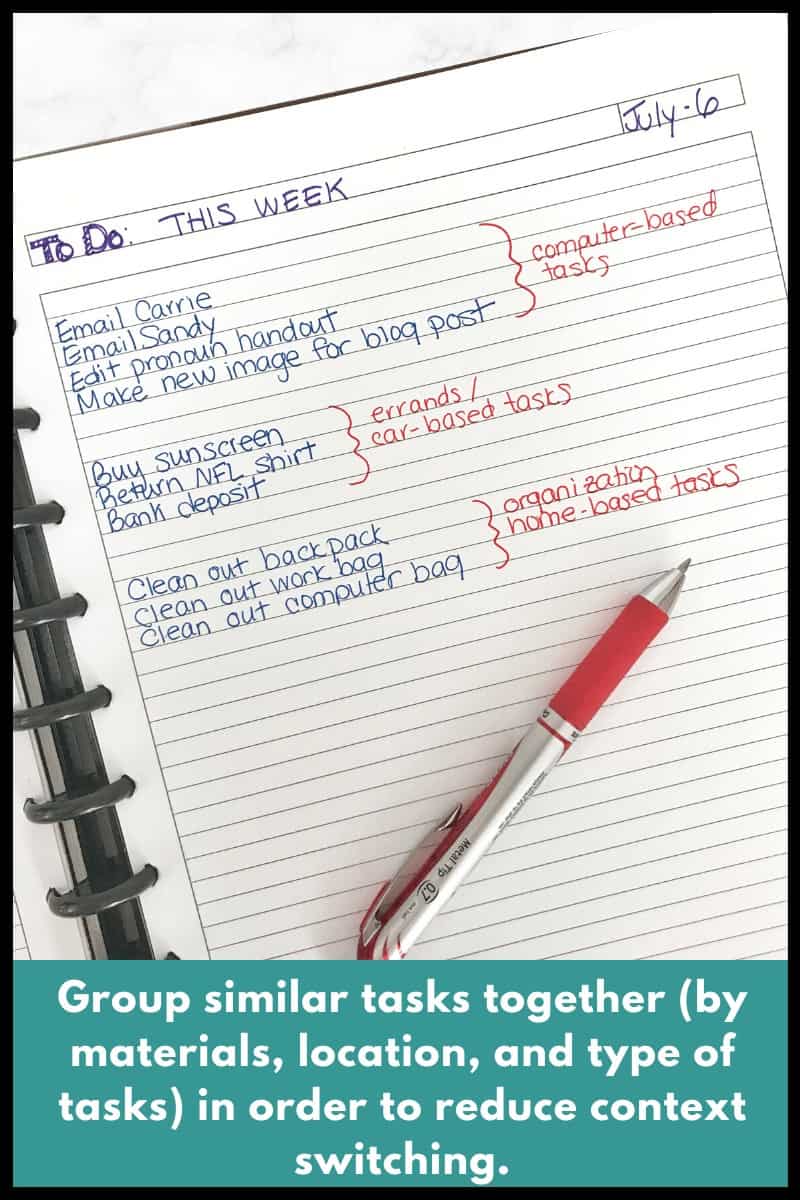 July-6
To Do: THIS WEEK
Email Carrie
Email Sandy
Edit pronoun handout
Make new image for blog post
computer-based
tasks
Buy sunscreen
Return NFL shirt
Bank deposit
errands/
car-based tasks
Clean out backpack
Clean out work bag
Clean out computer bag
organization
home-based tasks
Metal Tip 0.7
Group similar tasks together (by
materials, location, and type of
tasks) in order to reduce context
switching.